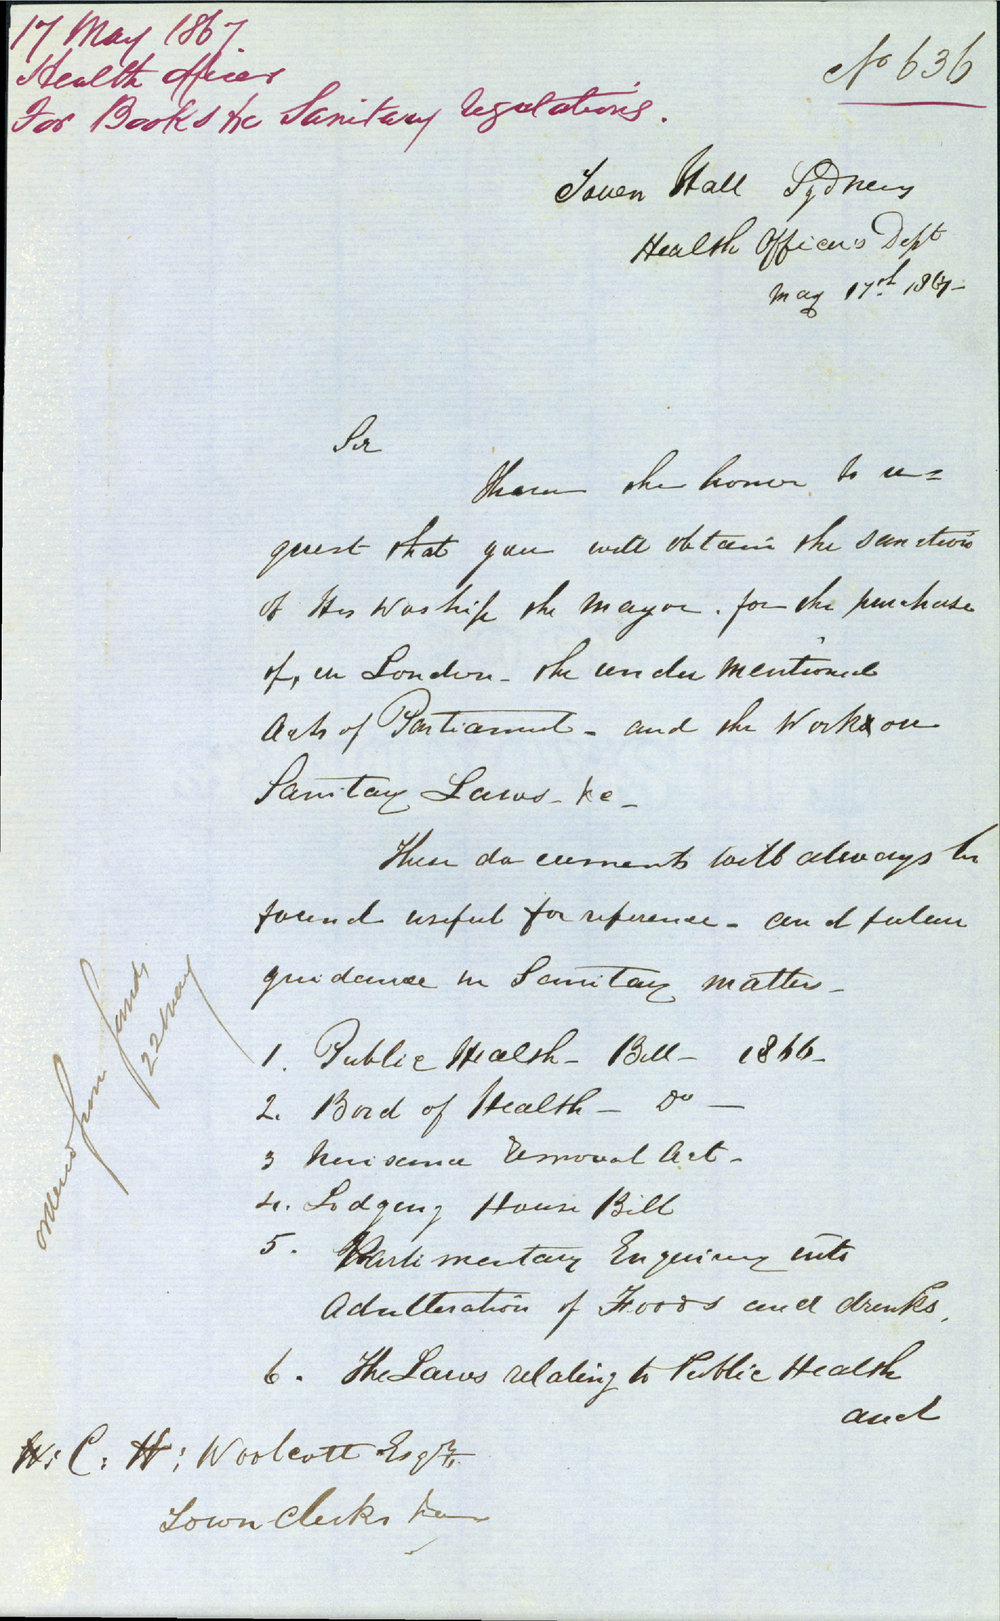 17 May 1867.
Health Officer
For Books &c Sanitary regulations.
No 636
Town Hall Sydney
Health Officer's Dept
May 17th 1867-
Sir
I have the honor to re=
quest that you will obtain the sanction
of His Worship the Mayor. for the purchase
of, in London - the under mentioned
Acts of Parliament - and the Works on
Sanitary Laws - &c -
These documents will always be
found useful for reference - and future
guidance in Sanitary matters -
1. Public Health - Bill - 1866 -
2. Bord of Health - Do -
3 Nuisance Removal Act -
4. Lodging House Bill
5. Parlimentary Enquirey into
Adulteration of Foods and drinks.
6. The Laws relating to Public Health
and
C: H: Woolcott Esqr.
Town Clerk &c
ordered from Sands
22 May